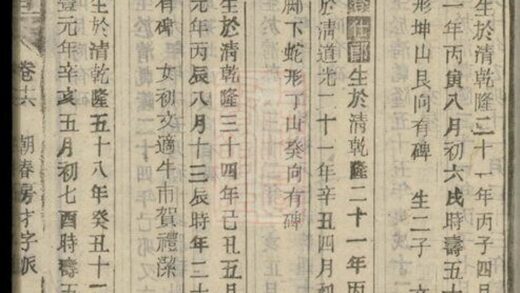 生於清乾隆二十一年丙子四月
一年丙寅八月初六戌時壽五十
形坤山艮向有碑 生二子 文
生於清乾隆二十一年丙
清道光二十一年辛丑四月初
脚下蛇形丁山癸向有碑
生於清乾隆三十四年己丑五月
元年丙辰八月十三辰時年二十
有碑 女初文適牛市賀禮濚
生於清乾隆五十八年癸丑十一
豐元年辛亥五月初七酉時壽五
卷六 朝春房才字派